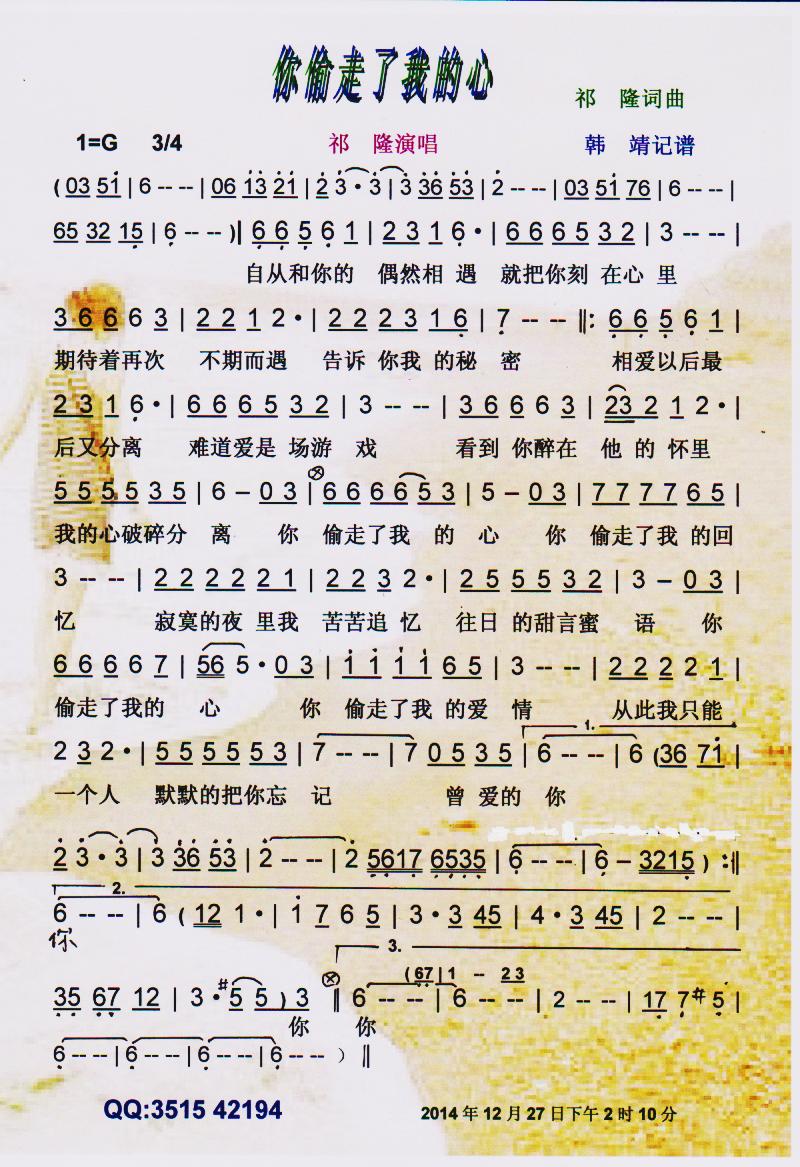 你偷走了我的心
祁 隆词曲
1=G 3/4 祁 隆演唱 韩 靖记谱
(03 51 | 6 - - - | 06 13 21 | 2 3 · 3 | 3 36 53 | 2 - - - | 03 51 76 | 6 - - - |
65 32 15 | 6 - - - )| 6 6 5 6 1 | 2 3 1 6 · | 6 6 6 5 3 2 | 3 - - - |
自从和你的 偶然相 遇 就把你刻 在心 里
3 6 6 6 3 | 2 2 1 2 · | 2 2 2 3 1 6 | 7 - - - ‖: 6 6 5 6 1 |
期待着再次 不期而遇 告诉 你我 的秘 密 相爱以后最
2 3 1 6 · | 6 6 6 5 3 2 | 3 - - - | 3 6 6 6 3 | 23 2 1 2 · |
后又分离 难道爱是 场游 戏 看到 你醉在 他 的 怀里
5 5 5 5 3 5 | 6 – 0 3 | 6 6 6 6 5 3 | 5 – 0 3 | 7 7 7 7 6 5 |
我的心破碎分 离 你 偷走了我 的 心 你 偷走了我 的回
3 - - - | 2 2 2 2 2 1 | 2 2 3 2 · | 2 5 5 5 3 2 | 3 – 0 3 |
忆 寂寞的夜 里我 苦苦追 忆 往日 的甜言蜜 语 你
6 6 6 6 7 | 56 5 · 0 3 | 1 1 1 1 6 5 | 3 - - - | 2 2 2 2 1 |
偷走了我的 心 你 偷走了我 的爱 情 从此我只能
1.
2 3 2 · | 5 5 5 5 5 3 | 7 - - - | 7 0 5 3 5 | 6 - - - | 6 (36 71 |
一个人 默默的把你忘 记 曾 爱的 你
2 3 · 3 | 3 36 53 | 2 - - - | 2 5617 6535 | 6 - - - | 6 – 3215 ) :‖
2.
6 - - - | 6 ( 12 1 · | 1 7 6 5 | 3 · 3 45 | 4 · 3 45 | 2 - - - |
你
3.
(67 | 1 -- 23
35 67 12 | 3 · #5 5 ) 3 ‖ 6 - - - | 6 - - - | 2 - - - | 17 7 #5 |
你 你
6 - - - | 6 - - - | 6 - - - | 6 - - - ) ‖
QQ:3515 42194
2014 年 12 月 27 日下午 2 时 10 分